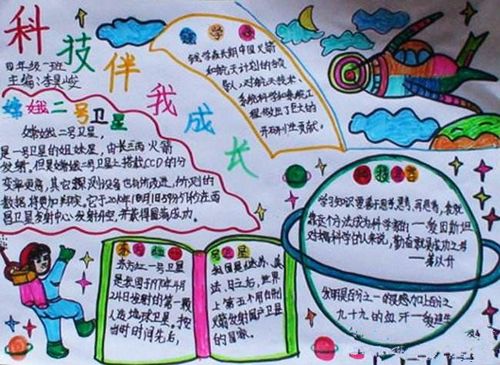 科技伴我成长
四年级一班
主编:李
钱学森
钱学森长期中国火箭
和航天计划的领
导人,对航天技术,
系统科学和系统工
程做出了巨大的
开拓性贡献。
嫦娥二号卫星
嫦娥二号卫星,
是一号卫星的姐妹星,由长三丙火箭
发射。但是嫦娥二号卫星上搭载CCD的分
率更高,其它探测设备也有所改进,所测的
数据将更加翔实。它于2010年10月1日18时59分57秒在西
昌卫星发射中心发射升空,并获得圆满成功。
科技名言
学习知识要善于思考,思考,再思考,我就
靠这个方法成为科学家的——爱因斯坦
对搞科学的人来说,勤奋就是成功之母
——茅以升
发明是百分之一的灵感加上百分之
九十九的血汗——爱迪生
东方红一号卫星
东方红一号卫星
是我国于1970年4月
24日发射的第一颗
人造地球卫星。按
当时时间先后,
我国是继苏、美、
法、日之后,世界
上第五个用自制
火箭发射国产卫星
的国家。